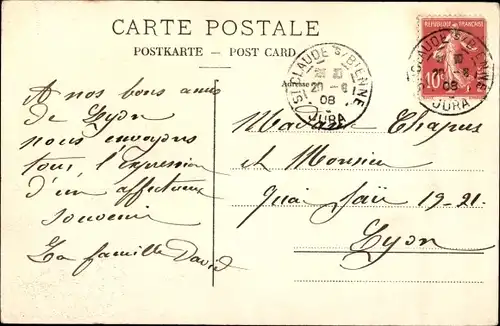 CARTE POSTALE
POSTKARTE — POST CARD
A nos bons amis
de Lyon
nous envoyons
tous, l'Expression
d'un affectueux
souvenir
La famille David
Adresse
ST CLAUDE S/BIENNE
20 - 8
08
JURA
REPUBLIQUE FRANÇAISE
10c
ST CLAUDE S/BIENNE
20 - 8
08
JURA
Madame Chapus
et Monsieur
Quai 19-21-
Lyon